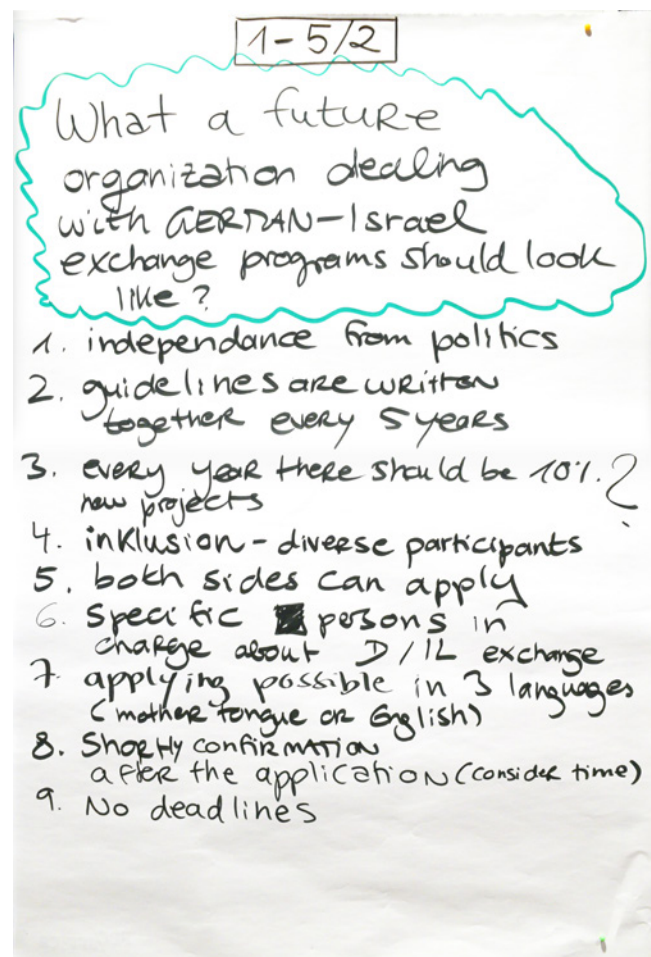 1-5/2
What a future
organization dealing
with GERMAN-Israel
exchange programs should look
like?
1. independance from politics
2. guidelines are written
together every 5 years
3. every year there should be 10%?
new projects
4. inklusion - diverse participants
5. both sides can apply
6. specific persons in
charge about D/IL exchange
7. applying possible in 3 languages
(mother tongue or English)
8. Shortly confirmation
after the application (consider time)
9. No deadlines